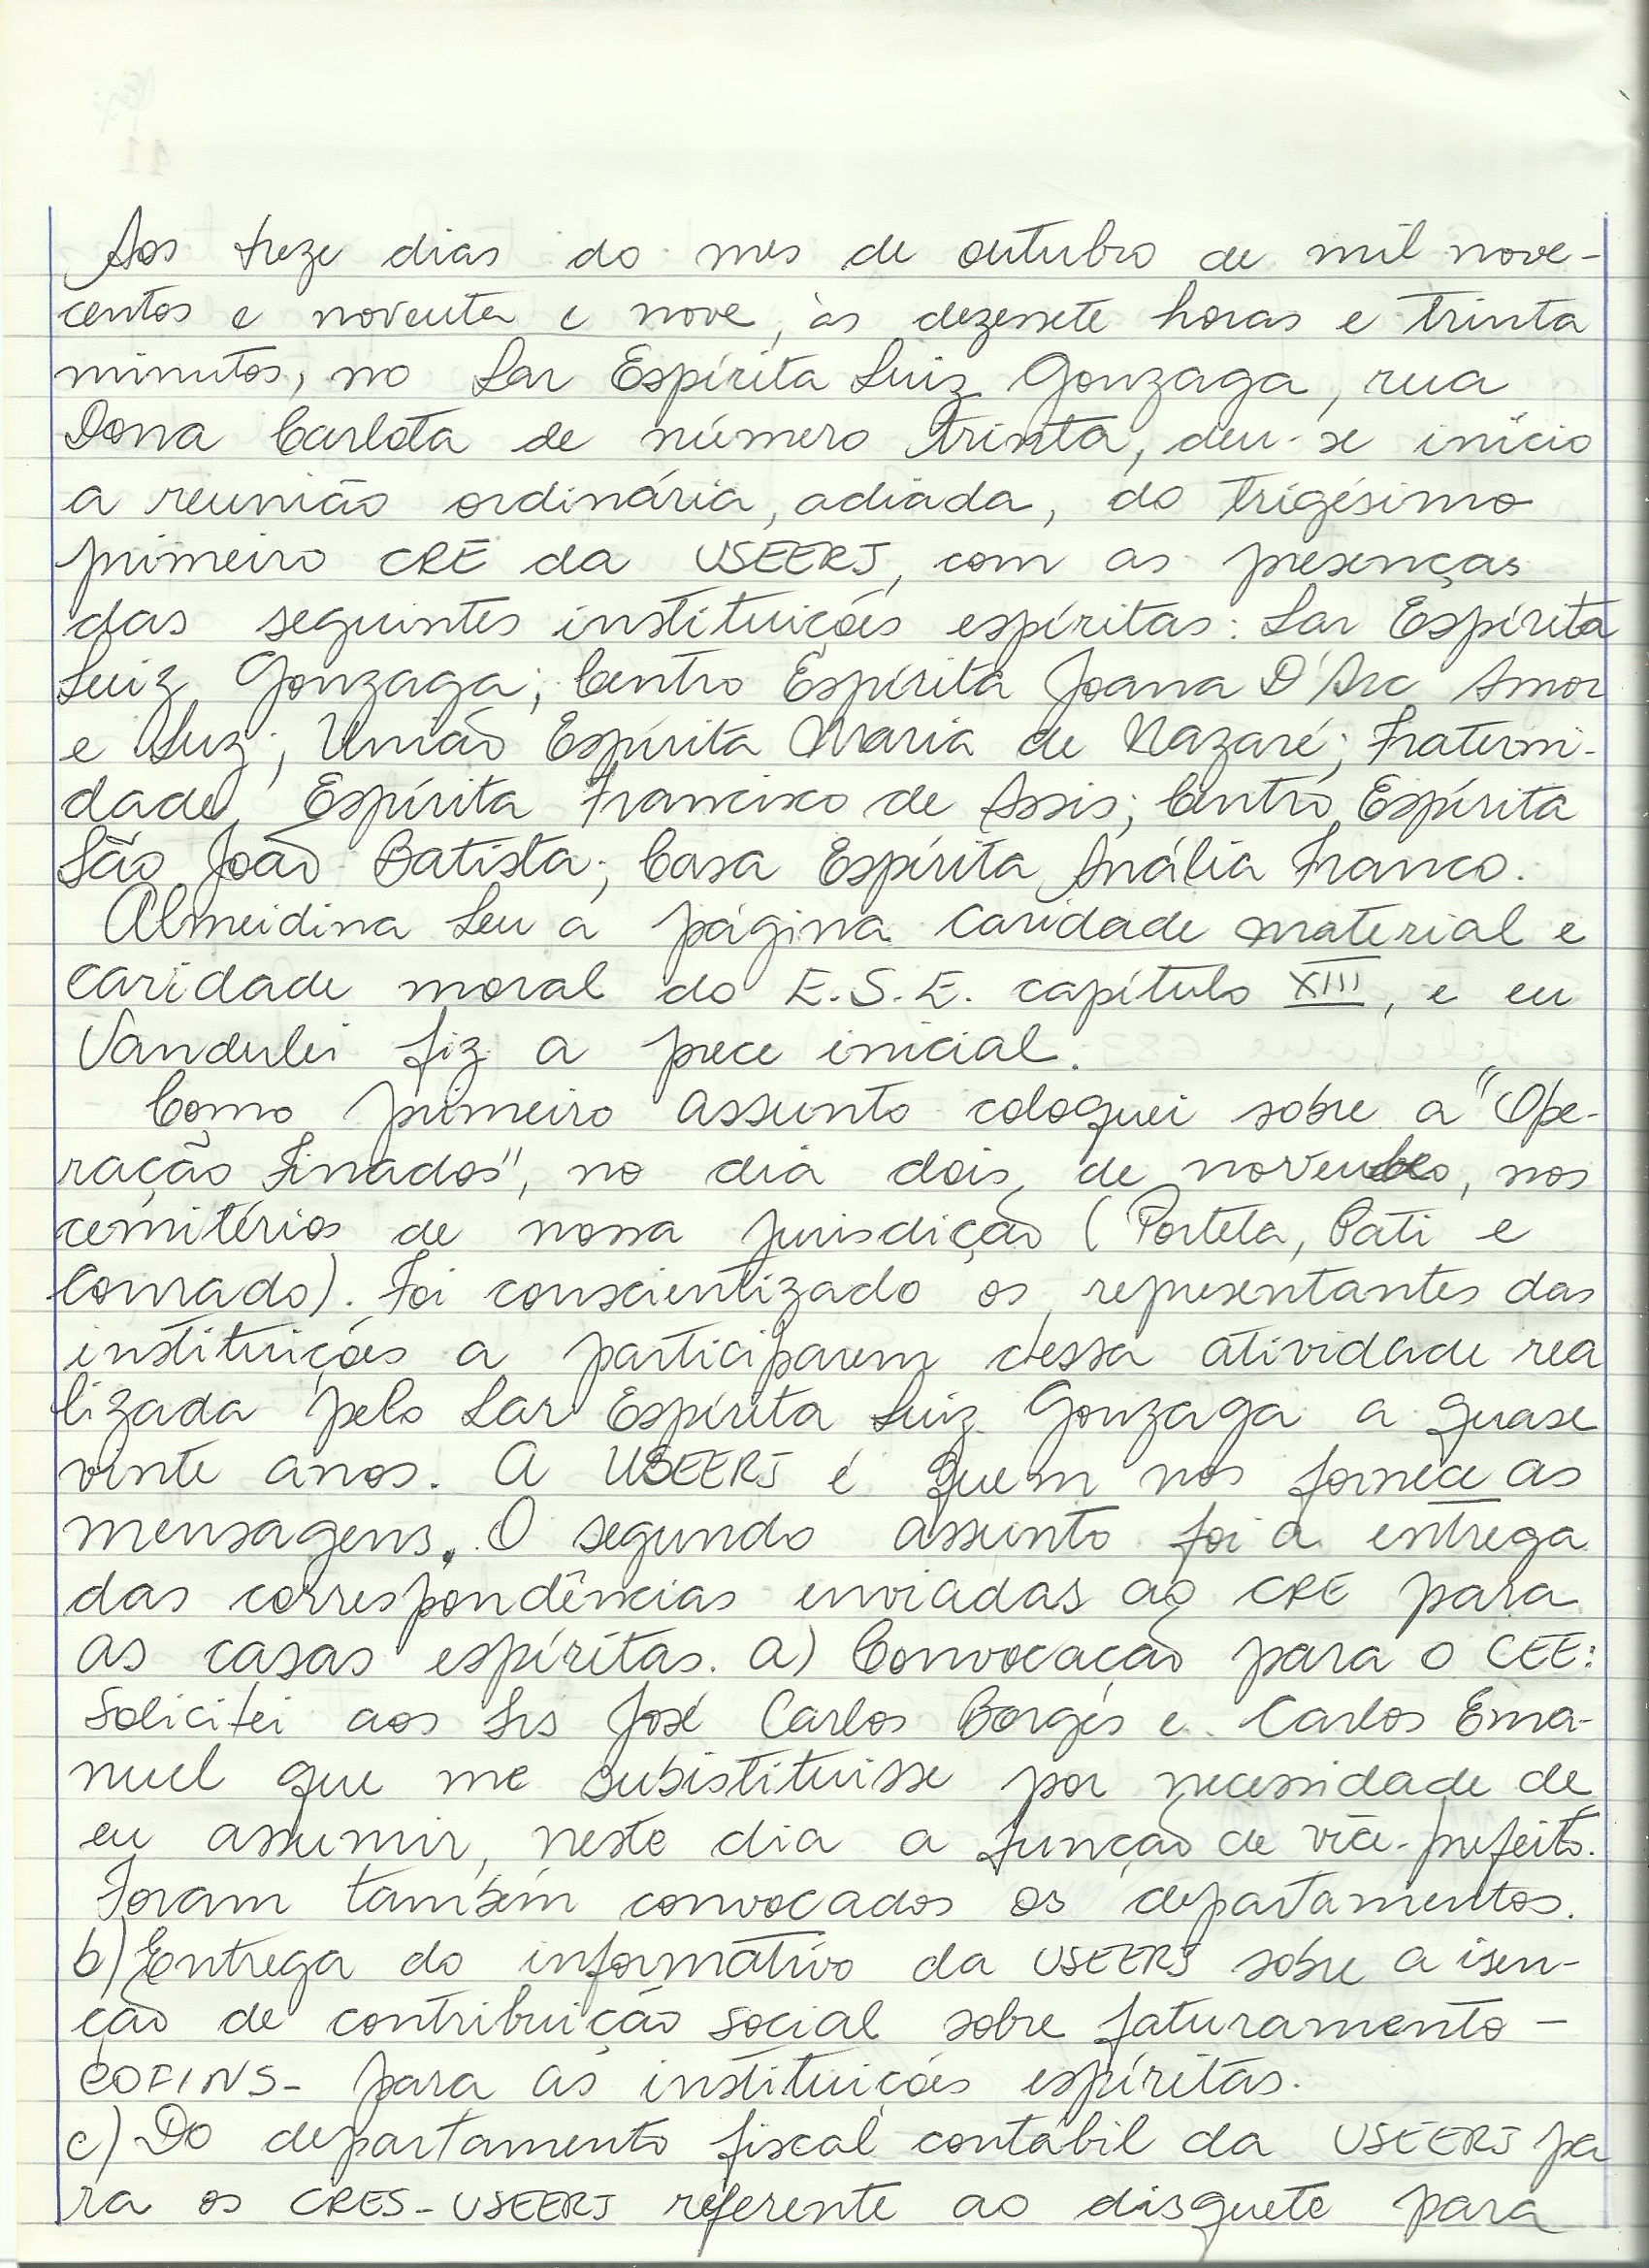 Aos treze dias do mes de outubro de mil nove-
centos e noventa e nove, às dezessete horas e trinta
minutos, no Lar Espírita Luiz Gonzaga, rua
Dona Carlota de número trinta, deu-se início
a reunião ordinária, adiada, do trigésimo
primeiro CRE da USEERJ, com as presenças
das seguintes instituições espíritas: Lar Espírita
Luiz Gonzaga; Centro Espírita Joana D'Arc Amor
e Luz; União Espírita Maria de Nazaré; Fraterni-
dade Espírita Francisco de Assis; Centro Espírita
São João Batista; Casa Espírita Anália Franco.
Almeidina leu a página caridade material e
caridade moral do E.S.E. capítulo XIII, e eu
Vanderlei fiz a prece inicial.
Como primeiro assunto coloquei sobre a "Ope-
ração Finados", no dia dois de novembro, nos
cemitérios de nossa jurisdição (Portela, Pati e
Conrado). Foi conscientizado os representantes das
instituições a participarem dessa atividade rea
lizada pelo Lar Espírita Luiz Gonzaga a quase
vinte anos. A USEERJ é quem nos fornece as
mensagens. O segundo assunto foi a entrega
das correspondências enviadas ao CRE para
as casas espíritas. a) Convocação para o CEE:
Solicitei aos Srs José Carlos Borges e Carlos Ema-
nuel que me subistituisse por necessidade de
eu assumir, neste dia a função de vice-prefeito.
Foram também convocados os departamentos.
b) Entrega do informativo da USEERJ sobre a isen-
ção de contribuição social sobre faturamento -
COFINS- para as instituições espíritas.
c) Do departamento fiscal contábil da USEERJ pa
ra os CRES-USEERJ referente ao disquete para